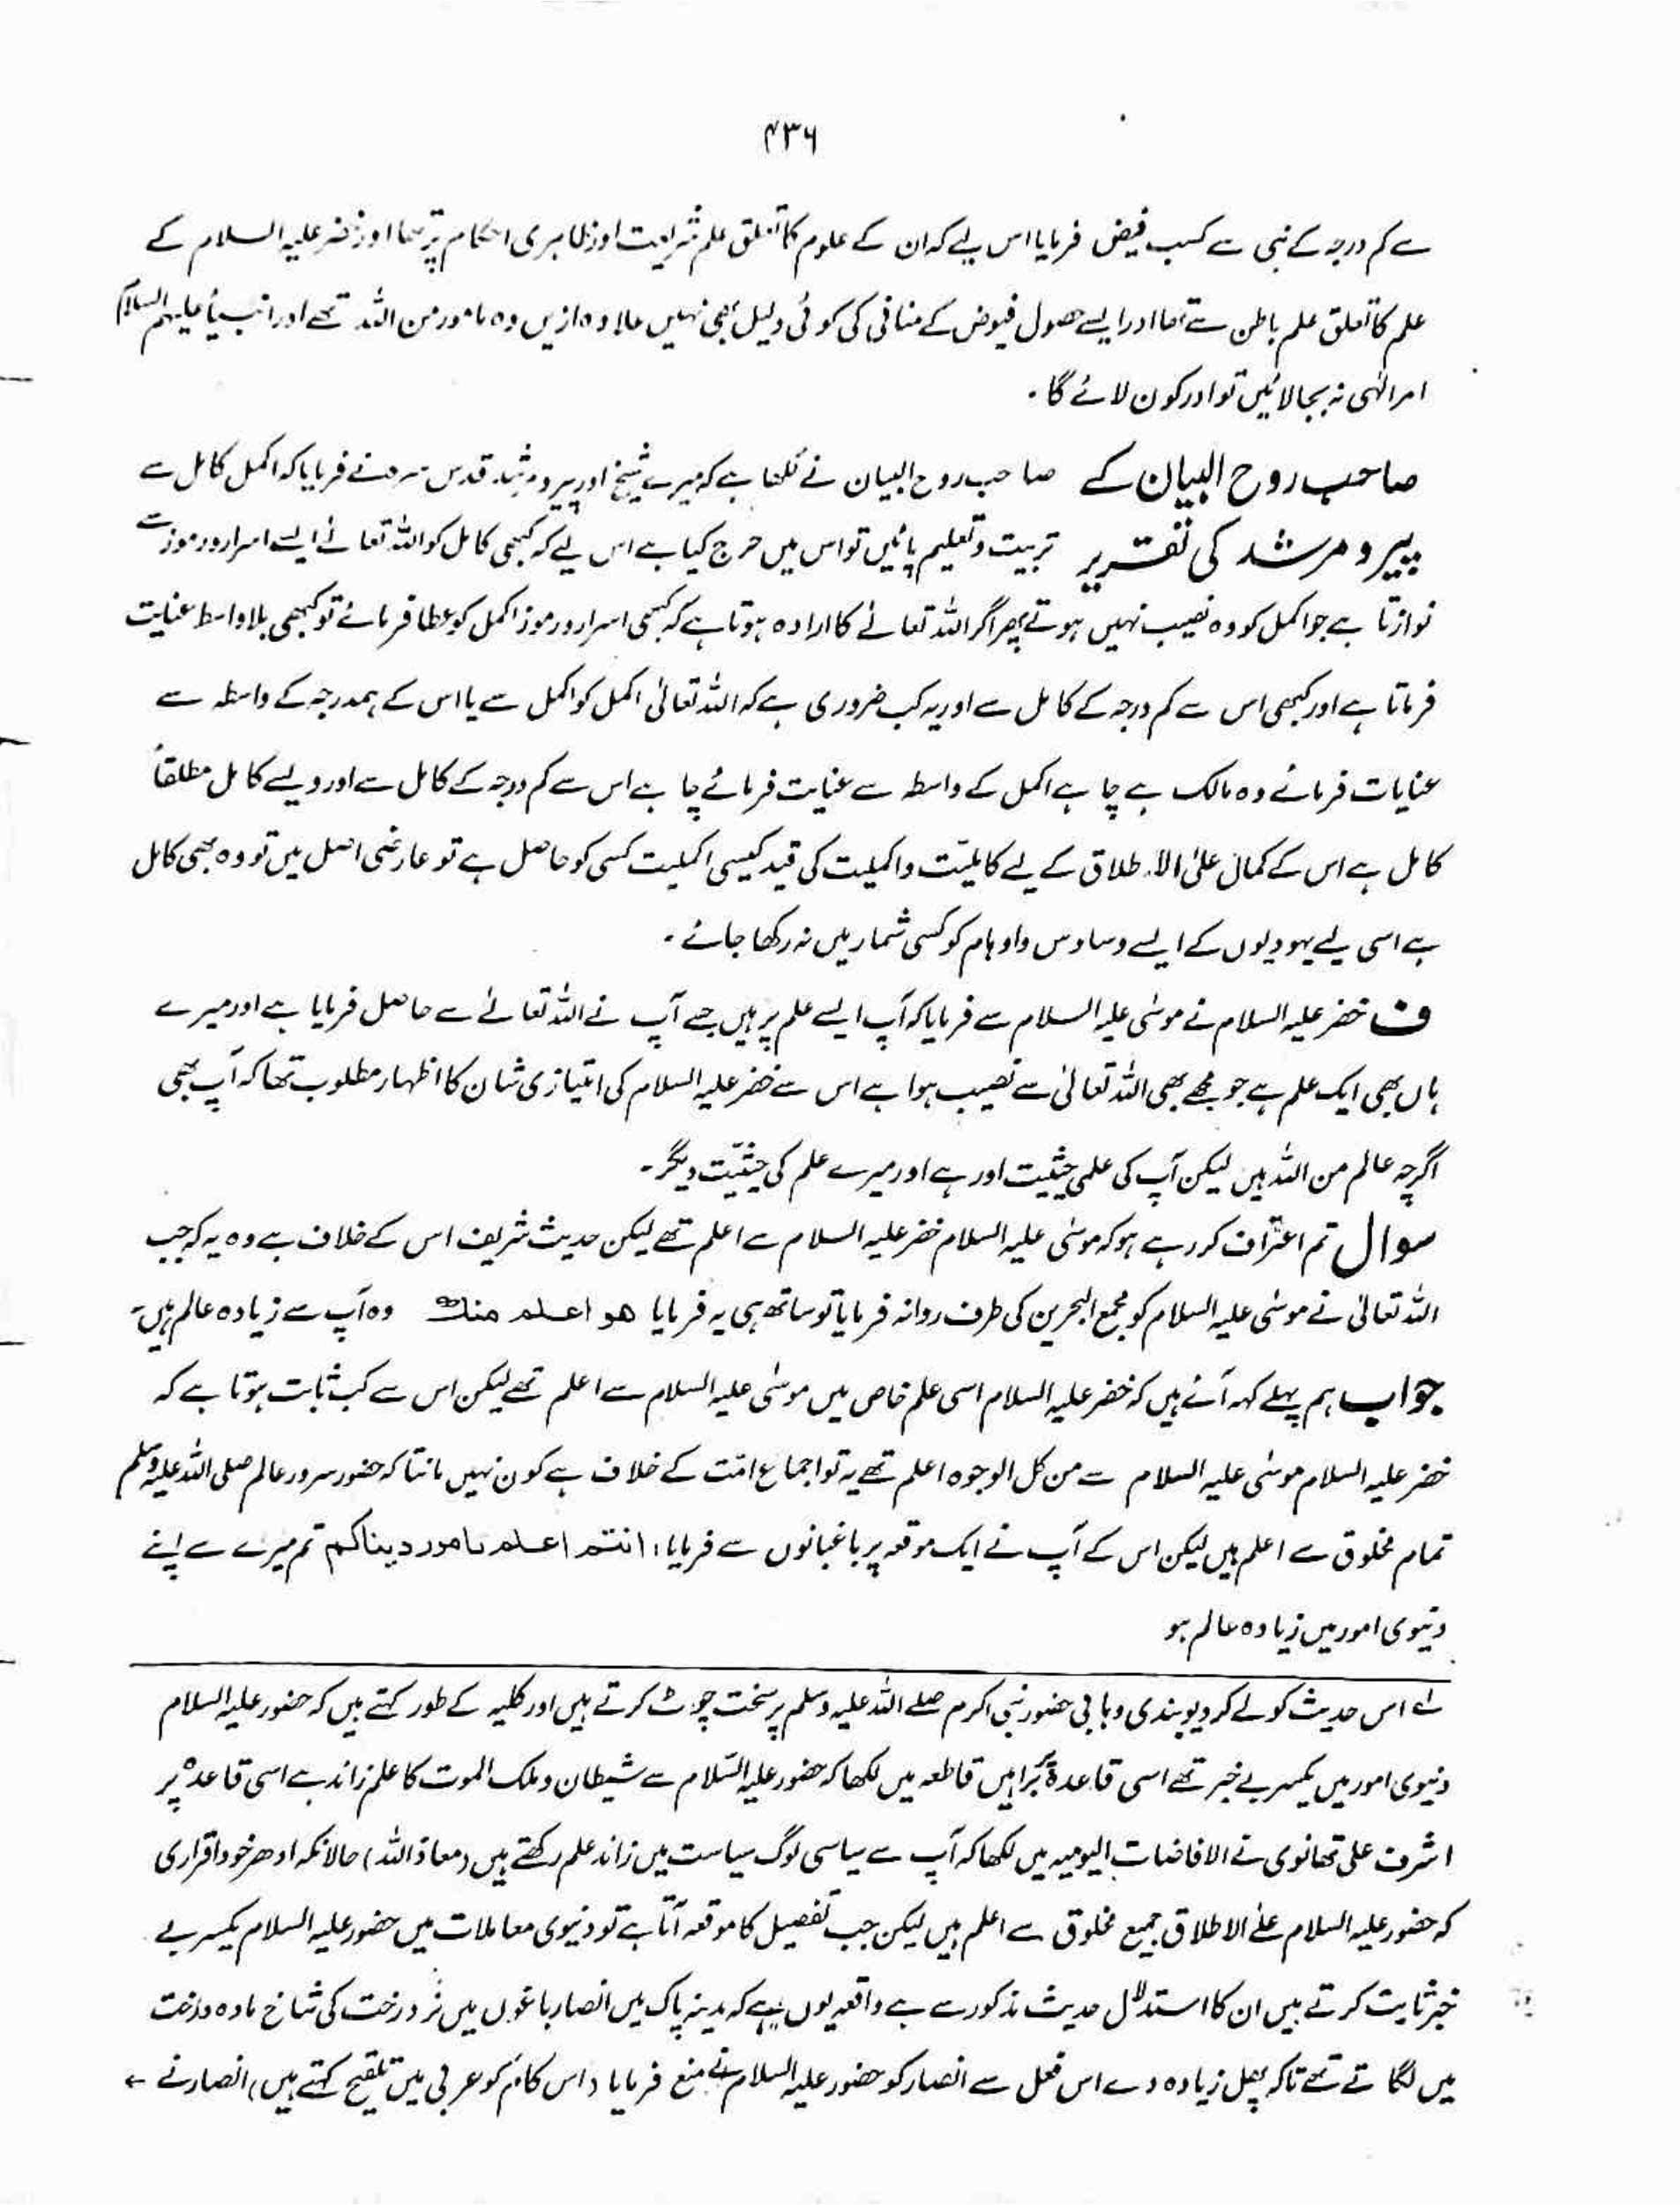 ۴۳۶
سے کم درجہ کے نبی سے کسب فیض فرمایا اس لیے کہ ان کے علوم کا تعلق علم شریعت اور ظاہری احکام پر تھا اور خضر علیہ السلام کے
علم کا تعلق علم باطن سے تھا اور ایسے حصول فیوض کے منافی کی کوئی دلیل بھی نہیں علاوہ ازیں وہ مامور من اللہ تھے اور انبیاء علیہم السلام
امر الٰہی نہ بجا لائیں تو اور کون لائے گا ۔
صاحب روح البیان کے صاحب روح البیان نے لکھا ہے کہ میرے شیخ اور پیر و مرشد قدس سرہ نے فرمایا کہ اکمل کامل سے
پیر و مرشد کی تقریر تربیت و تعلیم پائیں تو اس میں حرج کیا ہے اس لیے کہ کبھی کامل کو اللہ تعالےٰ ایسے اسرار و رموز سے
نوازتا ہے جو اکمل کو وہ نصیب نہیں ہوتے پھر اگر اللہ تعالےٰ کا ارادہ ہوتا ہے کہ کبھی اسرار و رموز اکمل کو عطا فرمائے تو کبھی بلاواسطہ عنایت
فرماتا ہے اور کبھی اس سے کم درجہ کے کامل سے اور یہ کب ضروری ہے کہ اللہ تعالیٰ اکمل کو اکمل سے یا اس کے ہمدرجہ کے واسطہ سے
عنایات فرمائے وہ مالک ہے چاہے اکمل کے واسطہ سے عنایت فرمائے چاہے اس سے کم درجہ کے کامل سے اور ویسے کامل مطلقاً
کامل ہے اس کے کمال علیٰ الاطلاق کے لیے کاملیّت و اکملیت کی قید کیسی اکملیت کسی کو حاصل ہے تو عارضی اصل میں تو وہ بھی کامل
ہے اسی لیے یہودیوں کے ایسے وساوس و اوہام کو کسی شمار میں نہ رکھا جائے ۔
ف خضر علیہ السلام نے موسٰی علیہ السلام سے فرمایا کہ آپ ایسے علم پر ہیں جسے آپ نے اللہ تعالےٰ سے حاصل فرمایا ہے اور میرے
ہاں بھی ایک علم ہے جو مجھے بھی اللہ تعالیٰ سے نصیب ہوا ہے اس سے خضر علیہ السلام کی امتیازی شان کا اظہار مطلوب تھا کہ آپ بھی
اگرچہ عالم من اللہ ہیں لیکن آپ کی علمی حیثیت اور ہے اور میرے علم کی حیثیّت دیگر ۔
سوال تم اعتراف کر رہے ہو کہ موسٰی علیہ السلام خضر علیہ السلام سے اعلم تھے لیکن حدیث شریف اس کے خلاف ہے وہ یہ کہ جب
اللہ تعالیٰ نے موسٰی علیہ السلام کو مجمع البحرین کی طرف روانہ فرمایا تو ساتھ ہی یہ فرمایا ھو اعلم منك وہ آپ سے زیادہ عالم ہیں ۔
جواب ہم پہلے کہہ آئے ہیں کہ خضر علیہ السلام اسی علم خاص میں موسٰی علیہ السلام سے اعلم تھے لیکن اس سے کب ثابت ہوتا ہے کہ
خضر علیہ السلام موسٰی علیہ السلام سے من کل الوجوہ اعلم تھے یہ تو اجماع امّت کے خلاف ہے کون نہیں مانتا کہ حضور سرور عالم صلی اللہ علیہ وسلم
تمام مخلوق سے اعلم ہیں لیکن اس کے آپ نے ایک موقعہ پر باغبانوں سے فرمایا : انتم اعلم بامور دیناکم تم میرے سے اپنے
دنیوی امور میں زیادہ عالم ہو
لے اس حدیث کو لے کر دیوبندی وہابی حضور نبی اکرم صلے اللہ علیہ وسلم پر سخت چوٹ کرتے ہیں اور کلیہ کے طور کہتے ہیں کہ حضور علیہ السلام
دنیوی امور میں یکسر بے خبر تھے اسی قاعدہ پر براہین قاطعہ میں لکھا کہ حضور علیہ السّلام سے شیطان و ملک الموت کا علم زائد ہے اسی قاعدہ پر
اشرف علی تھانوی نے الافاضات الیومیہ میں لکھا کہ آپ سے سیاسی لوگ سیاست میں زائد علم رکھتے ہیں (معاذ اللہ) حالانکہ ادھر خود اقراری
کہ حضور علیہ السلام علےٰ الاطلاق جمیع مخلوق سے اعلم ہیں لیکن جب تفصیل کا موقعہ آتا ہے تو دنیوی معاملات میں حضور علیہ السلام یکسر بے
خبر ثابت کرتے ہیں ان کا استدلال حدیث مذکور سے ہے واقعہ یوں ہے کہ مدینہ پاک میں انصار باغوں میں نر درخت کی شاخ مادہ درخت
میں لگاتے تھے تاکہ پھل زیادہ دے اس فعل سے انصار کو حضور علیہ السلام نے منع فرمایا (اس کام کو عربی میں تلقیح کہتے ہیں) انصار نے ←